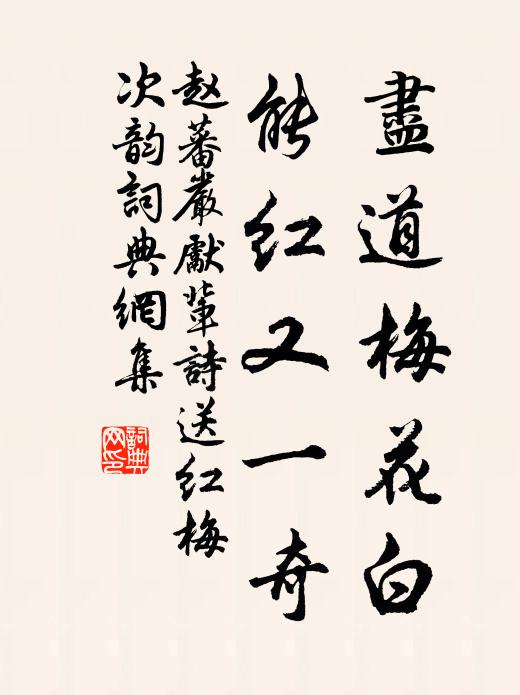 盡道梅花白
能红又一奇
赵蕃嚴獻輩詩送红梅
次韵詞典網集
詞典
网印